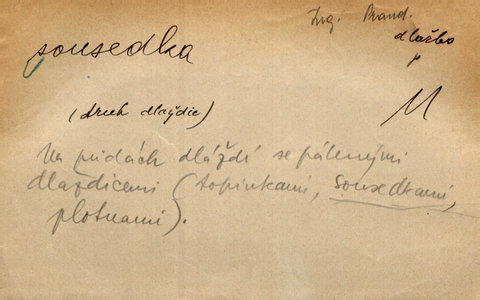 Ing. Brand.
sousedka
dlažba
(druh dlaždic)
M
Na půdách dláždí se pálenými
dlaždicemi (topinkami, sousedkami,
plotnami).